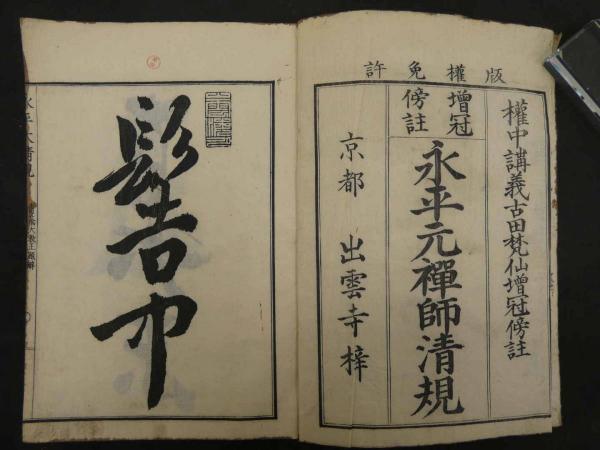 版權免許
權中講義古田梵仙增冠傍註
增冠
傍註
永平元禪師清規
京都 出雲寺梓
髻中
永平大清規